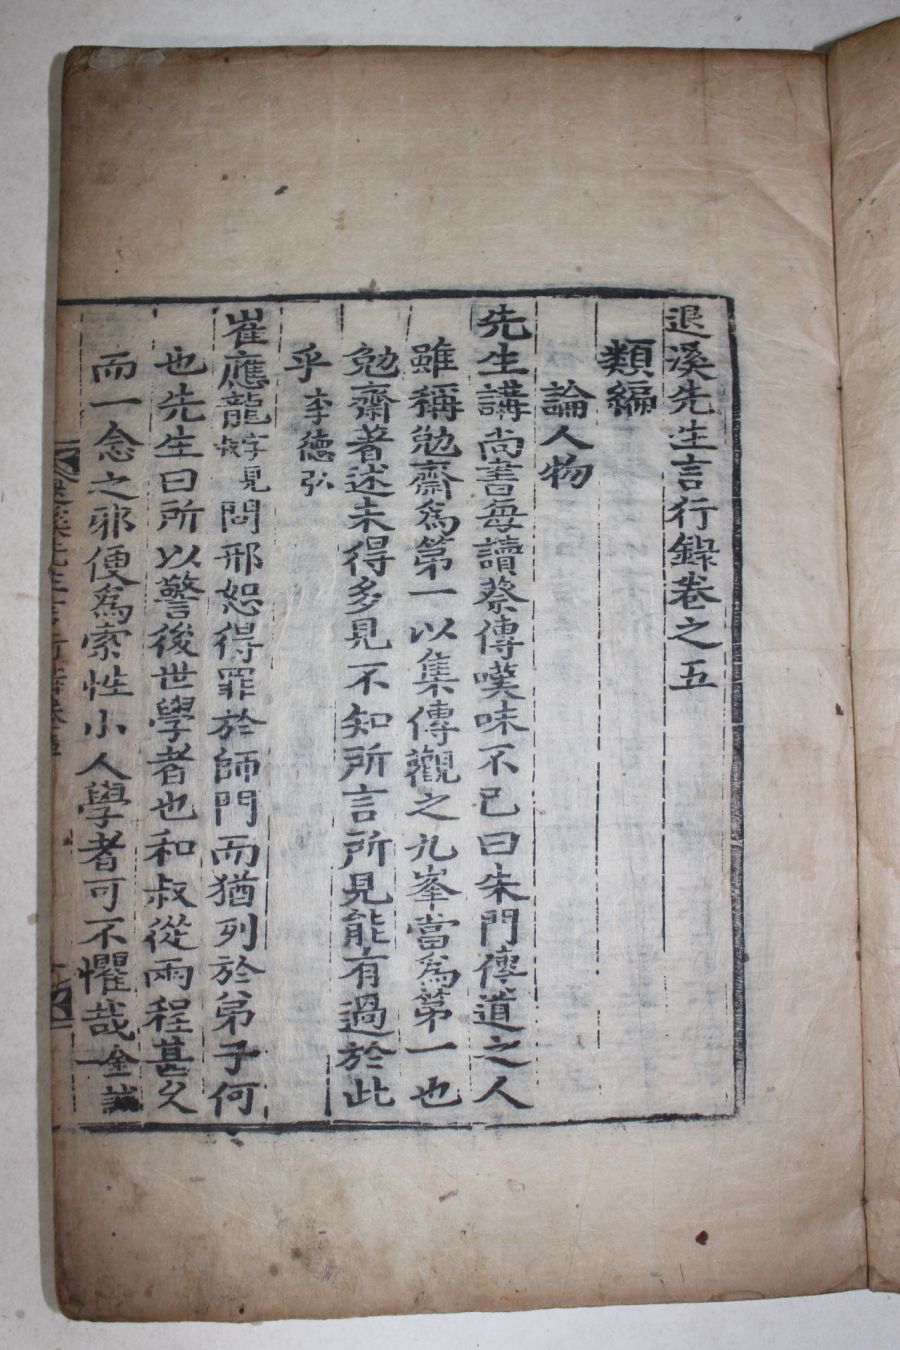 退溪先生言行錄卷之五
類編
論人物
先生講尚書每讀蔡傳嘆味不已曰朱門傳道之人
雖稱勉齋爲第一以集傳觀之九峯當爲第一也
勉齋著述未得多見不知所言所見能有過於此
乎李德弘
崔應龍見問邢恕得罪於師門而猶列於弟子何
也先生曰所以警後世學者也和叔從兩程甚久
而一念之邪便爲索性小人學者可不懼哉金誠一